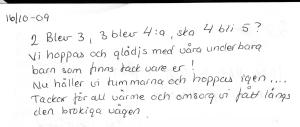 16/10-09
2 Blev 3, 3 blev 4:a, ska 4 bli 5?
Vi hoppas och glädjs med våra underbara
barn som finns tack vare er!
Nu håller vi tummarna och hoppas igen....
Tackar för all värme och omsorg vi fått längs
den brokiga vägen.